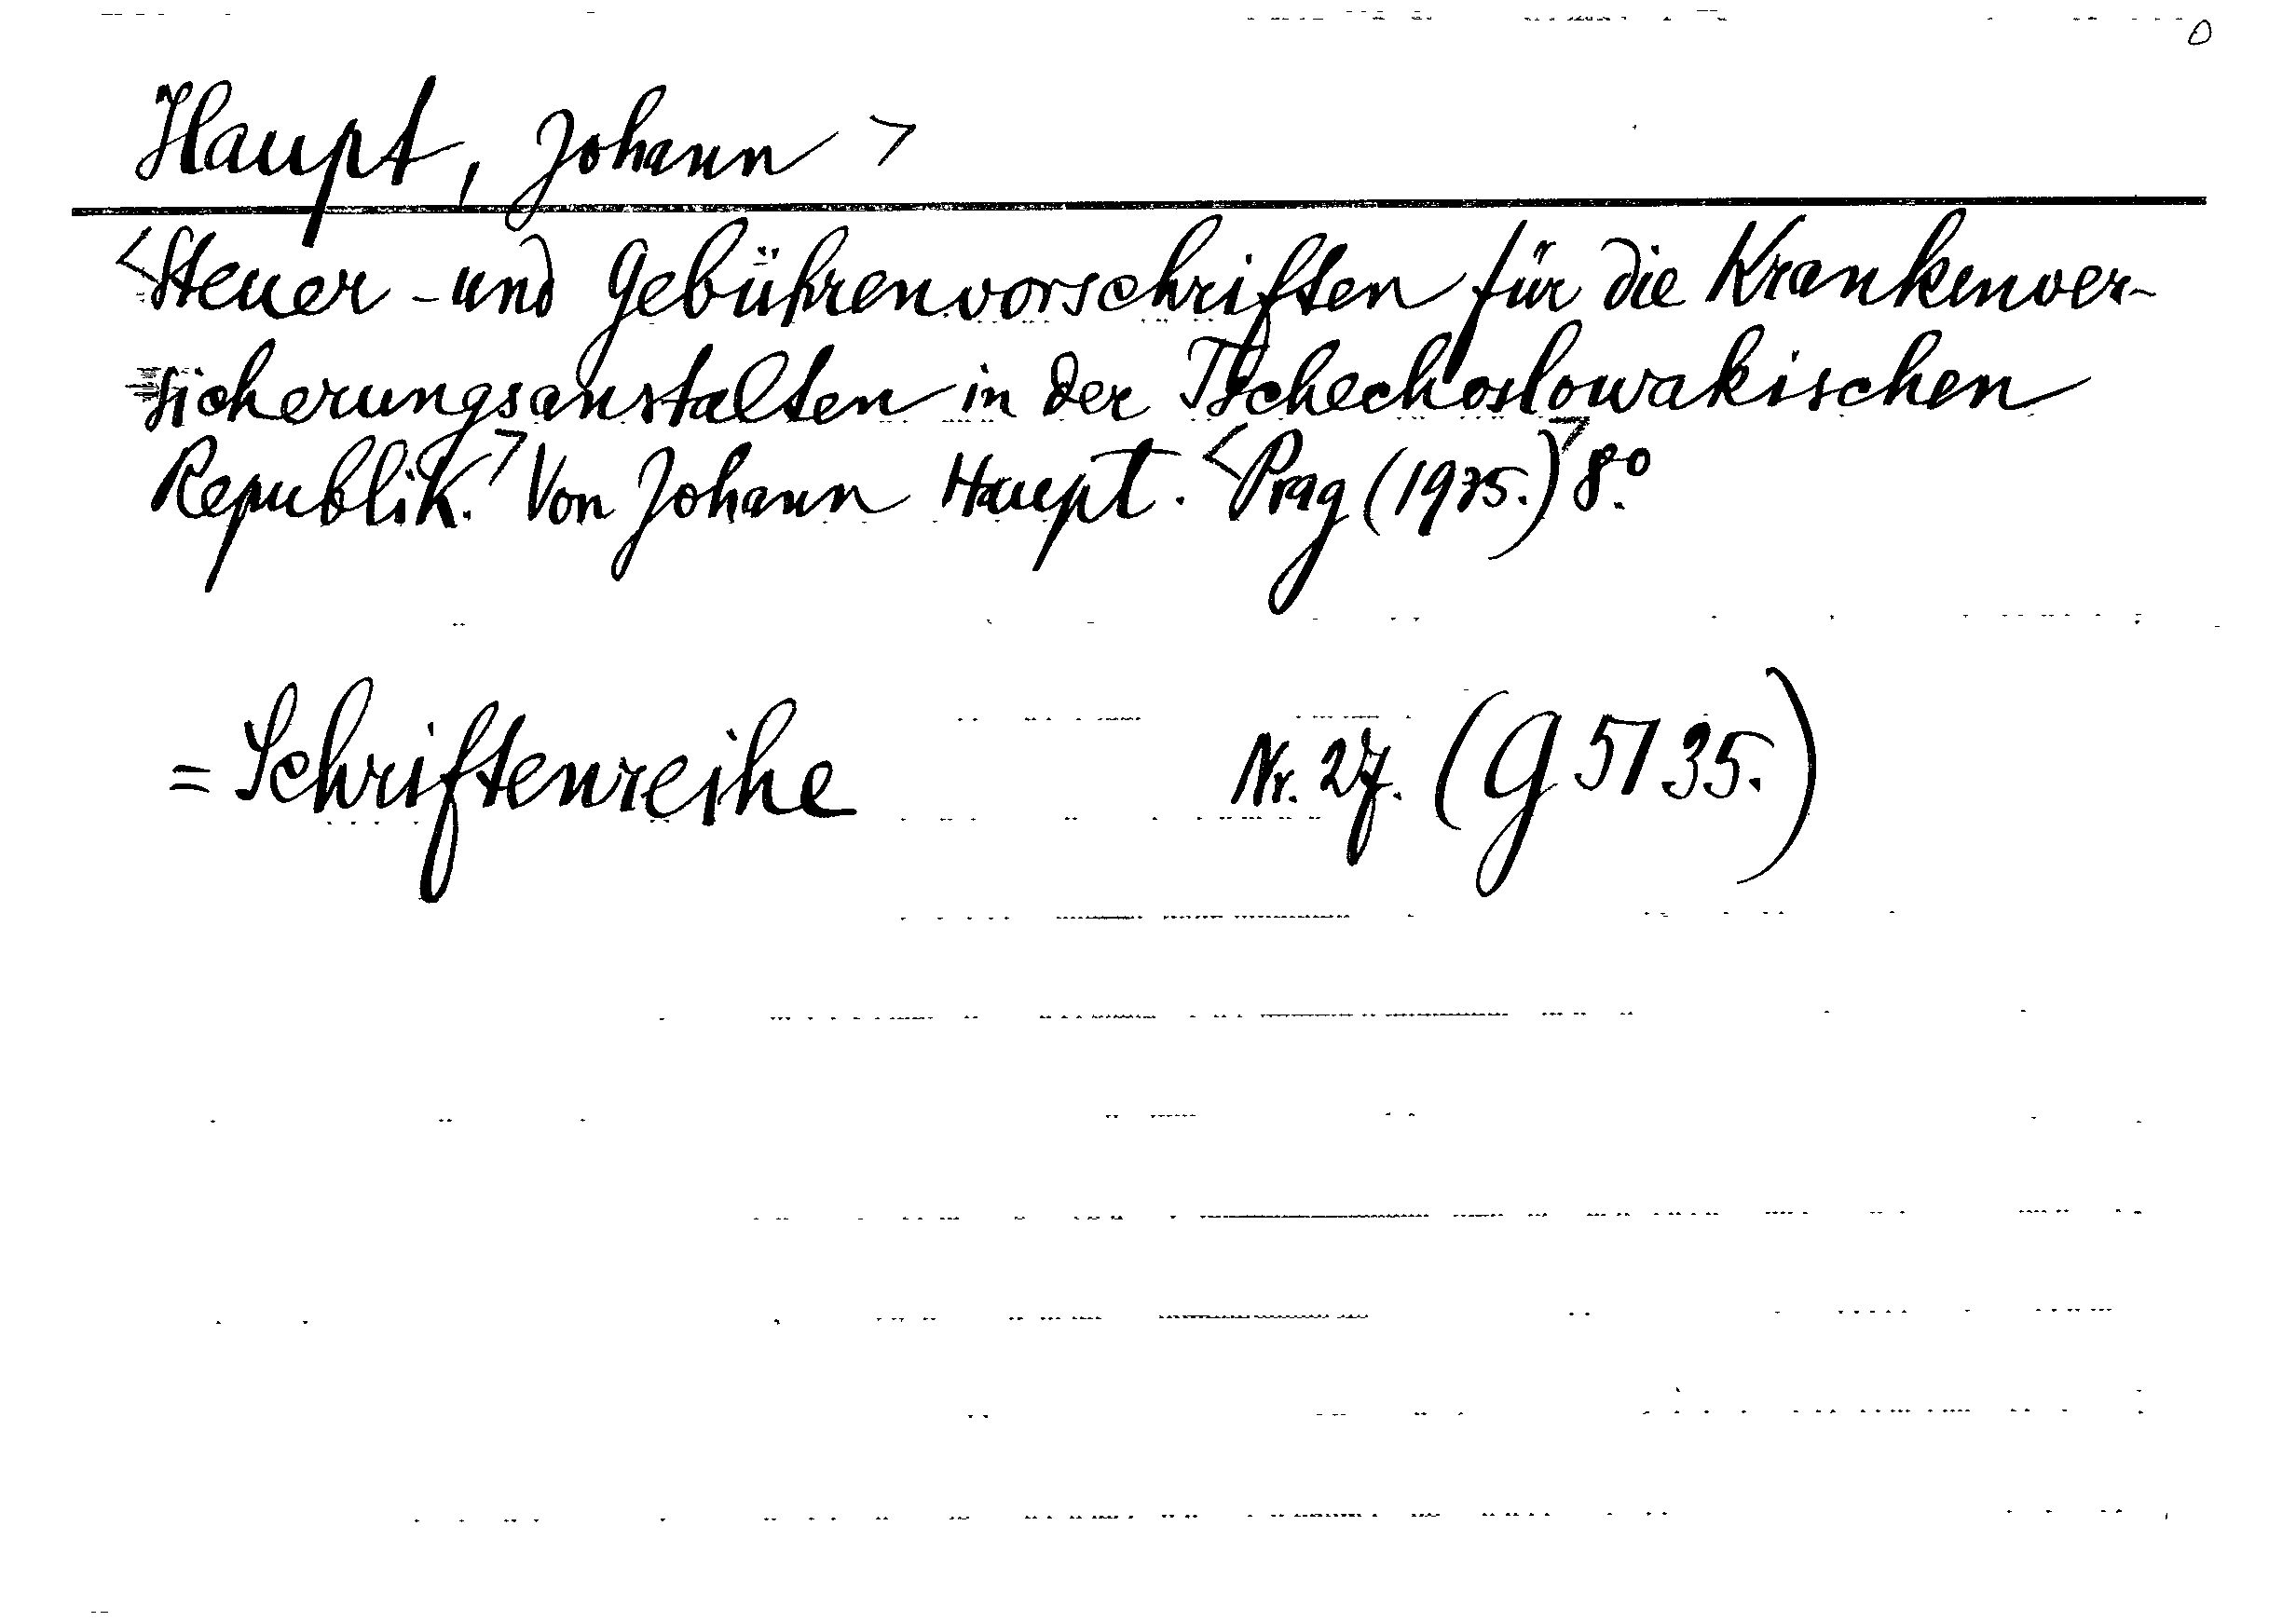 Haupt, Johann >
<Steuer- und Gebührenvorschriften für die Krankenver-
sicherungsanstalten in der Tschechoslowakischen
Republik.> Von Johann Haupt. <Prag (1935.)> 8.°
= Schriftenreihe Nr. 27. (G 5135.)